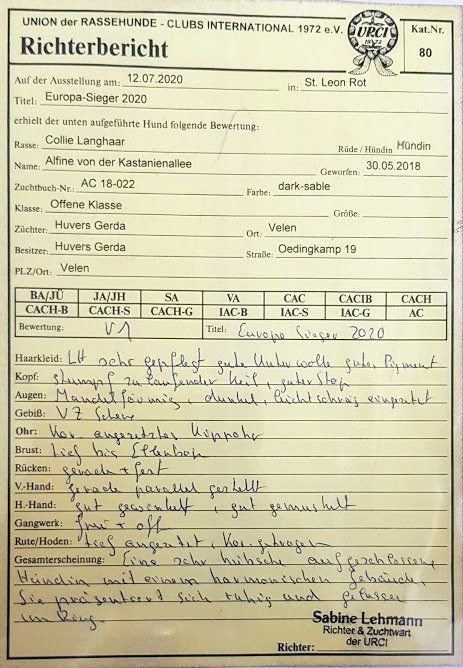 UNION der RASSEHUNDE - CLUBS INTERNATIONAL 1972 e.V.
Richterbericht
URCI
1972
Kat.Nr.
80
Auf der Ausstellung am: 12.07.2020 in: St. Leon Rot
Titel: Europa-Sieger 2020
erhielt der unten aufgeführte Hund folgende Bewertung:
Rasse: Collie Langhaar Rüde / Hündin Hündin
Name: Alfine von der Kastanienallee Geworfen: 30.05.2018
Zuchtbuch-Nr.: AC 18-022 Farbe: dark-sable
Klasse: Offene Klasse Größe:
Züchter: Huvers Gerda Ort: Velen
Besitzer: Huvers Gerda Straße: Oedingkamp 19
PLZ/Ort: Velen
BA/JÜ JA/JH SA VA CAC CACIB CACH
CACH-B CACH-S CACH-G IAC-B IAC-S IAC-G AC
Bewertung: V1 Titel: Europa Sieger 2020
Haarkleid: LH sehr gepflegt gute Unterwolle gutes Pigment
Kopf: stumpf zulaufender Keil, guter Stop
Augen: Mandelförmig, dunkel, leicht schräg eingesetzt
Gebiß: VZ Schere
Ohr: Kor. angesetztes Kippohr
Brust: tief bis Ellenbogen
Rücken: gerade + fest
V.-Hand: gerade parallel gestellt
H.-Hand: gut gewinkelt, gut gemuskelt
Gangwerk: frei +
Rute/Hoden: tief angesetzt, Kor. getragen
Gesamterscheinung: Eine sehr hübsche aufgeschlossene
Hündin mit einem harmonischen Gebäude.
Sie präsentiert sich ruhig und gelassen
im Ring.
Sabine Lehmann
Richter & Zuchtwart
der URCI
Richter: